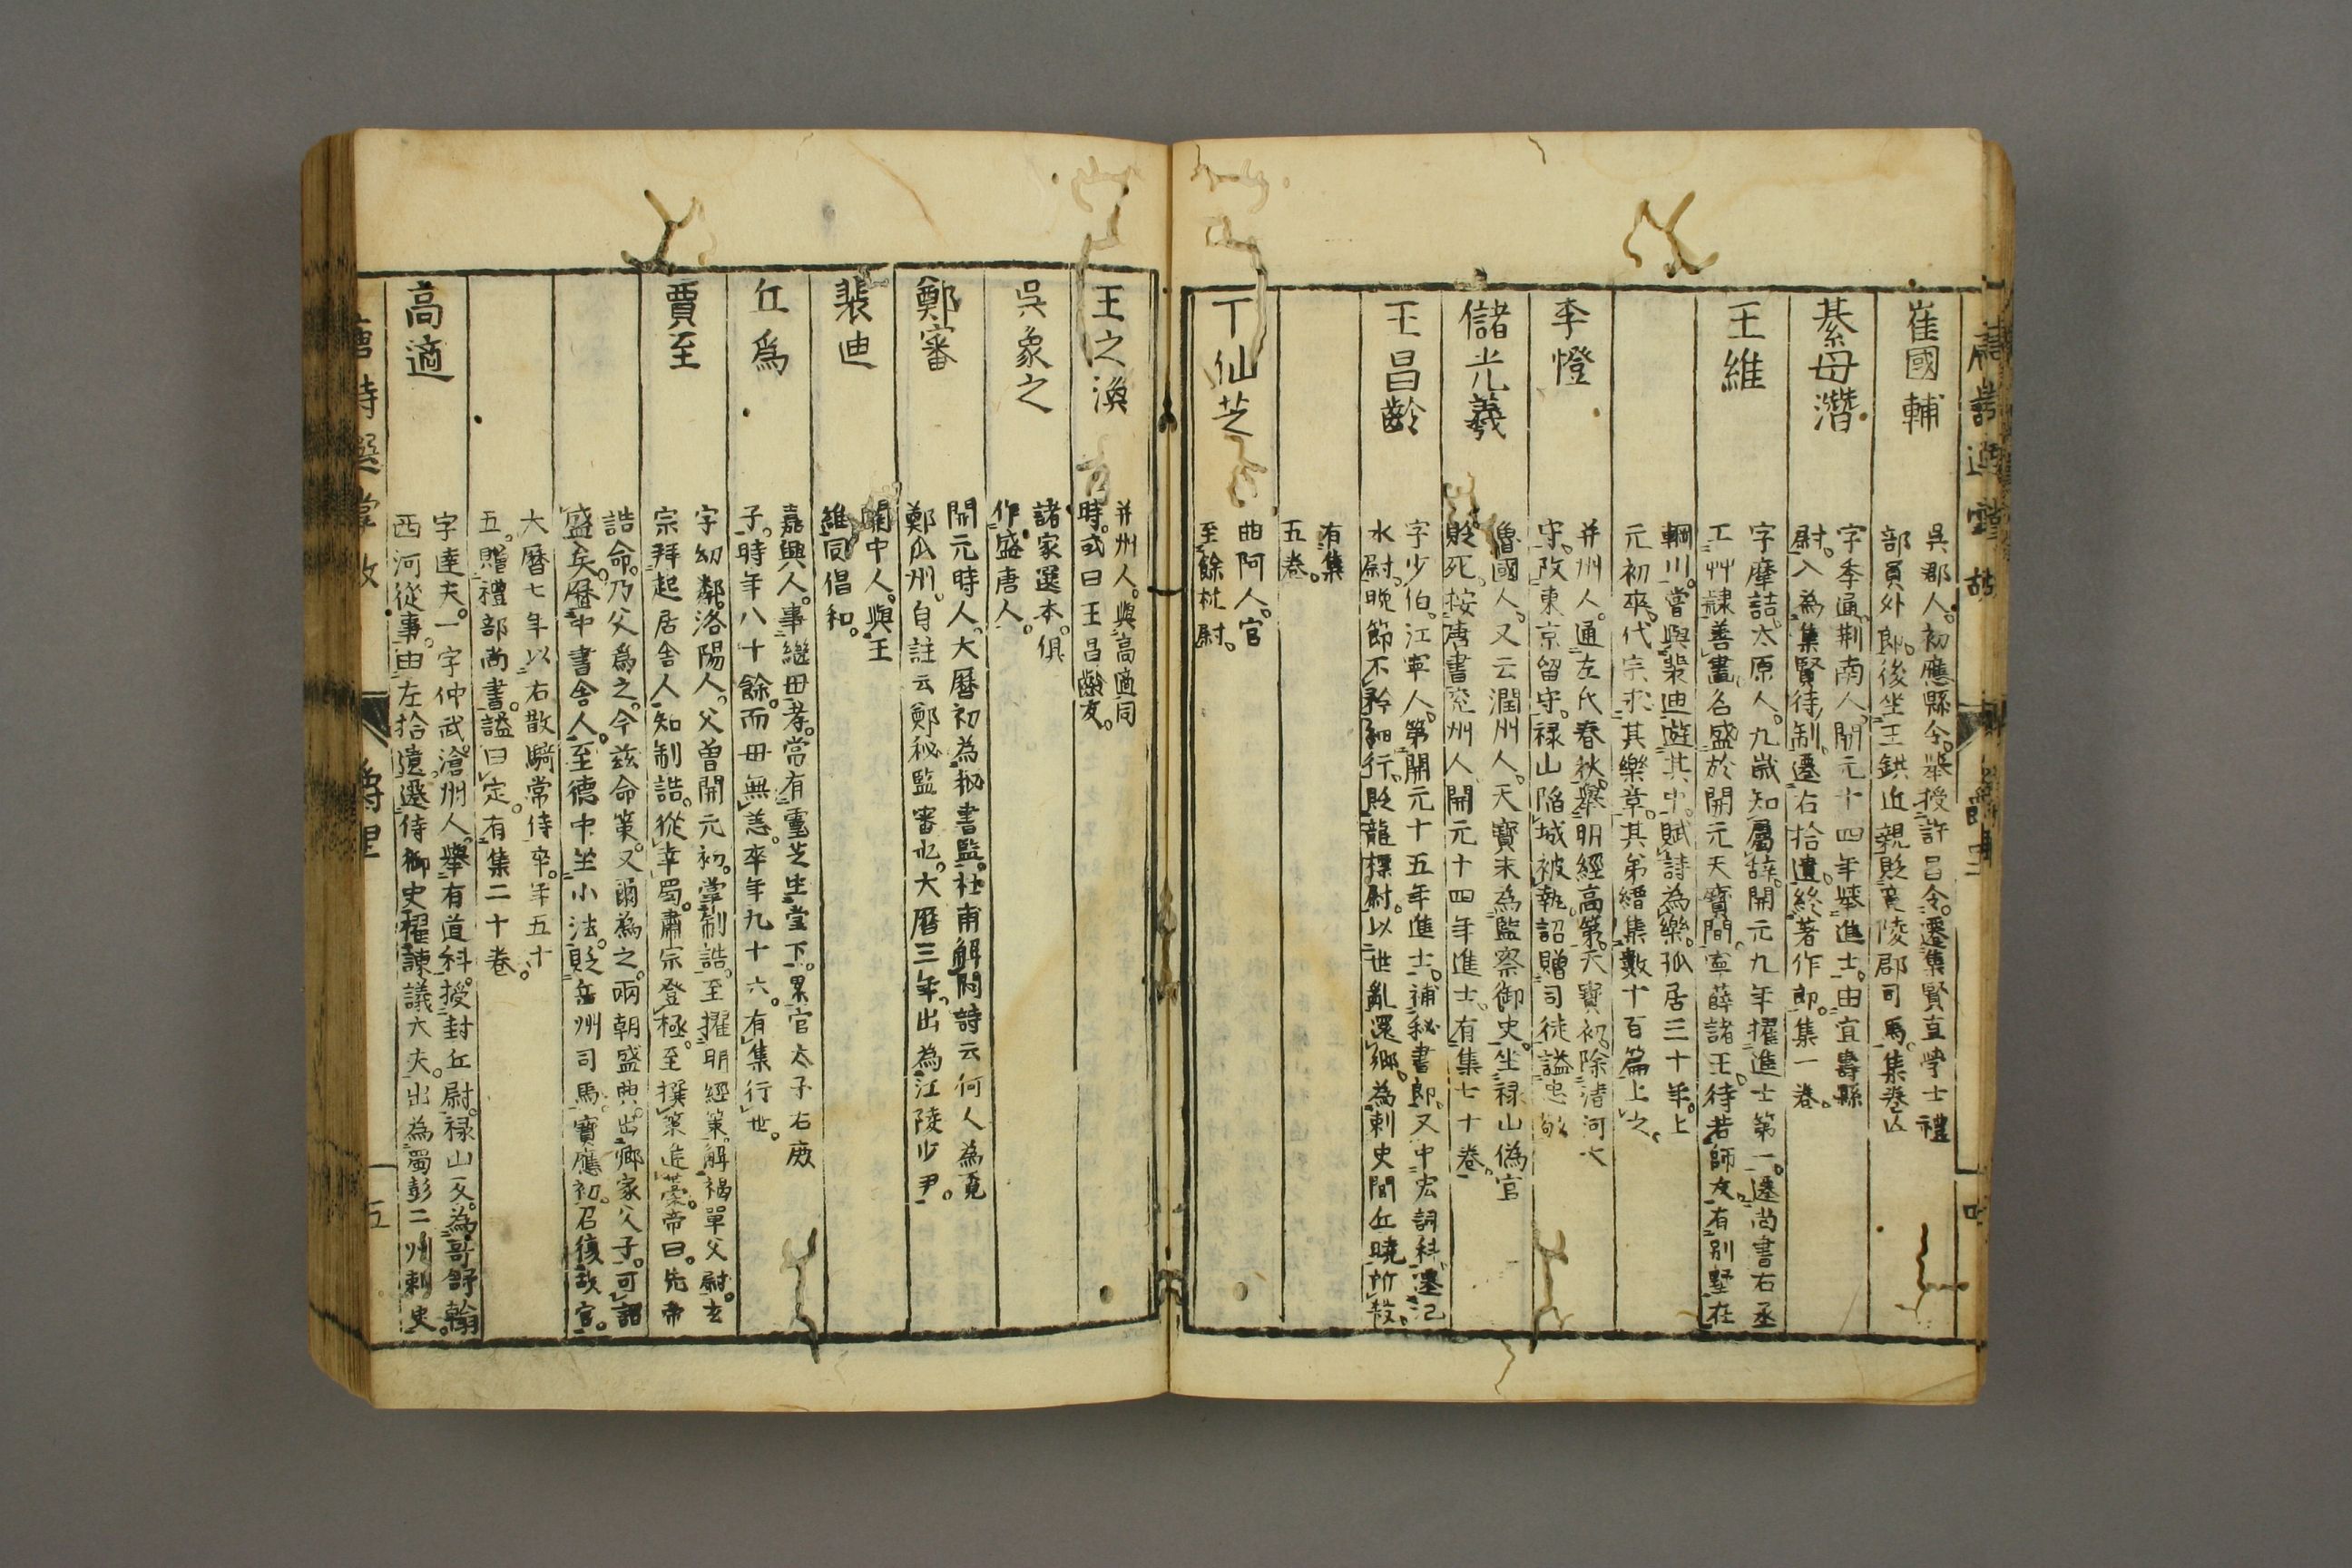 崔國輔
吳郡人。初應縣令。舉授許昌令。遷集賢直學士禮
部員外郎。後坐王鉷近親貶竟陵郡司馬。集卷亡
綦母潛
字季通。荆南人。開元十四年舉進士。由宜壽縣
尉。入為集賢待制。遷右拾遺。終著作郎。集一卷。
王維
字摩詰。太原人。九歲知屬辭。開元九年擢進士第一。遷尚書右丞
工艸隷善畫。名盛於開元天寶間。寧薛諸王。待若師友。有別墅在
輞川。嘗與裴迪遊其中。賦詩為樂。孤居三十年。上
元初卒。代宗求其樂章。其弟縉集數十百篇上之。
李憕
并州人。通左氏春秋。舉明經高第。天寶初。除清河大
守。改東京留守。禄山陷城被執。詔贈司徒謚忠
儲光羲
魯國人。又云潤州人。天寶末為監察御史。坐禄山偽官
貶死。按唐書兗州人開元十四年進士。有集七十卷。
王昌齡
字少伯。江寧人。第開元十五年進士。補秘書郎。又中宏詞科。遷汜
水尉。晚節不矜細行。貶龍標尉。以世亂還鄉。為刺史閭丘曉所殺。
有集
五卷。
丁仙芝
曲阿人。官
至餘杭尉。
王之渙
并州人。與高適同
時。或曰王昌齡友。
吳象之
諸家選本。俱
作盛唐人。
鄭審
開元時人。大曆初為秘書監。杜甫解悶詩云何人為覓
鄭瓜州。自註云鄭秘監審也。大曆三年。出為江陵少尹。
裴迪
關中人。與王
維同倡和。
丘爲
嘉興人。事繼母孝。常有靈芝生堂下。累官太子右庶
子。時年八十餘。而母無恙。卒年九十六。有集行世。
賈至
字幼鄰。洛陽人。父曽開元初。掌制誥。至擢明經策。解褐單父尉。玄
宗拜起居舎人知制誥。從幸蜀。肅宗登極。至撰策進藁。帝曰。先帝
誥命。乃父爲之。今兹命策。又爾為之。兩朝盛典。出卿家父子。可謂
盛矣。曆中書舎人。至德中坐小法。貶岳州司馬。寶應初。召復故官。
大曆七年以右散騎常侍卒。年五十
五。贈禮部尚書。謚曰定。有集二十卷。
高適
字達夫。一字仲武。滄州人。舉有道科。授封丘尉。禄山反。為哥舒翰
西河從事。由左拾遺。遷侍御史。擢諫議大夫。出為蜀彭二州刺史。
唐詩選掌故
爵里
五